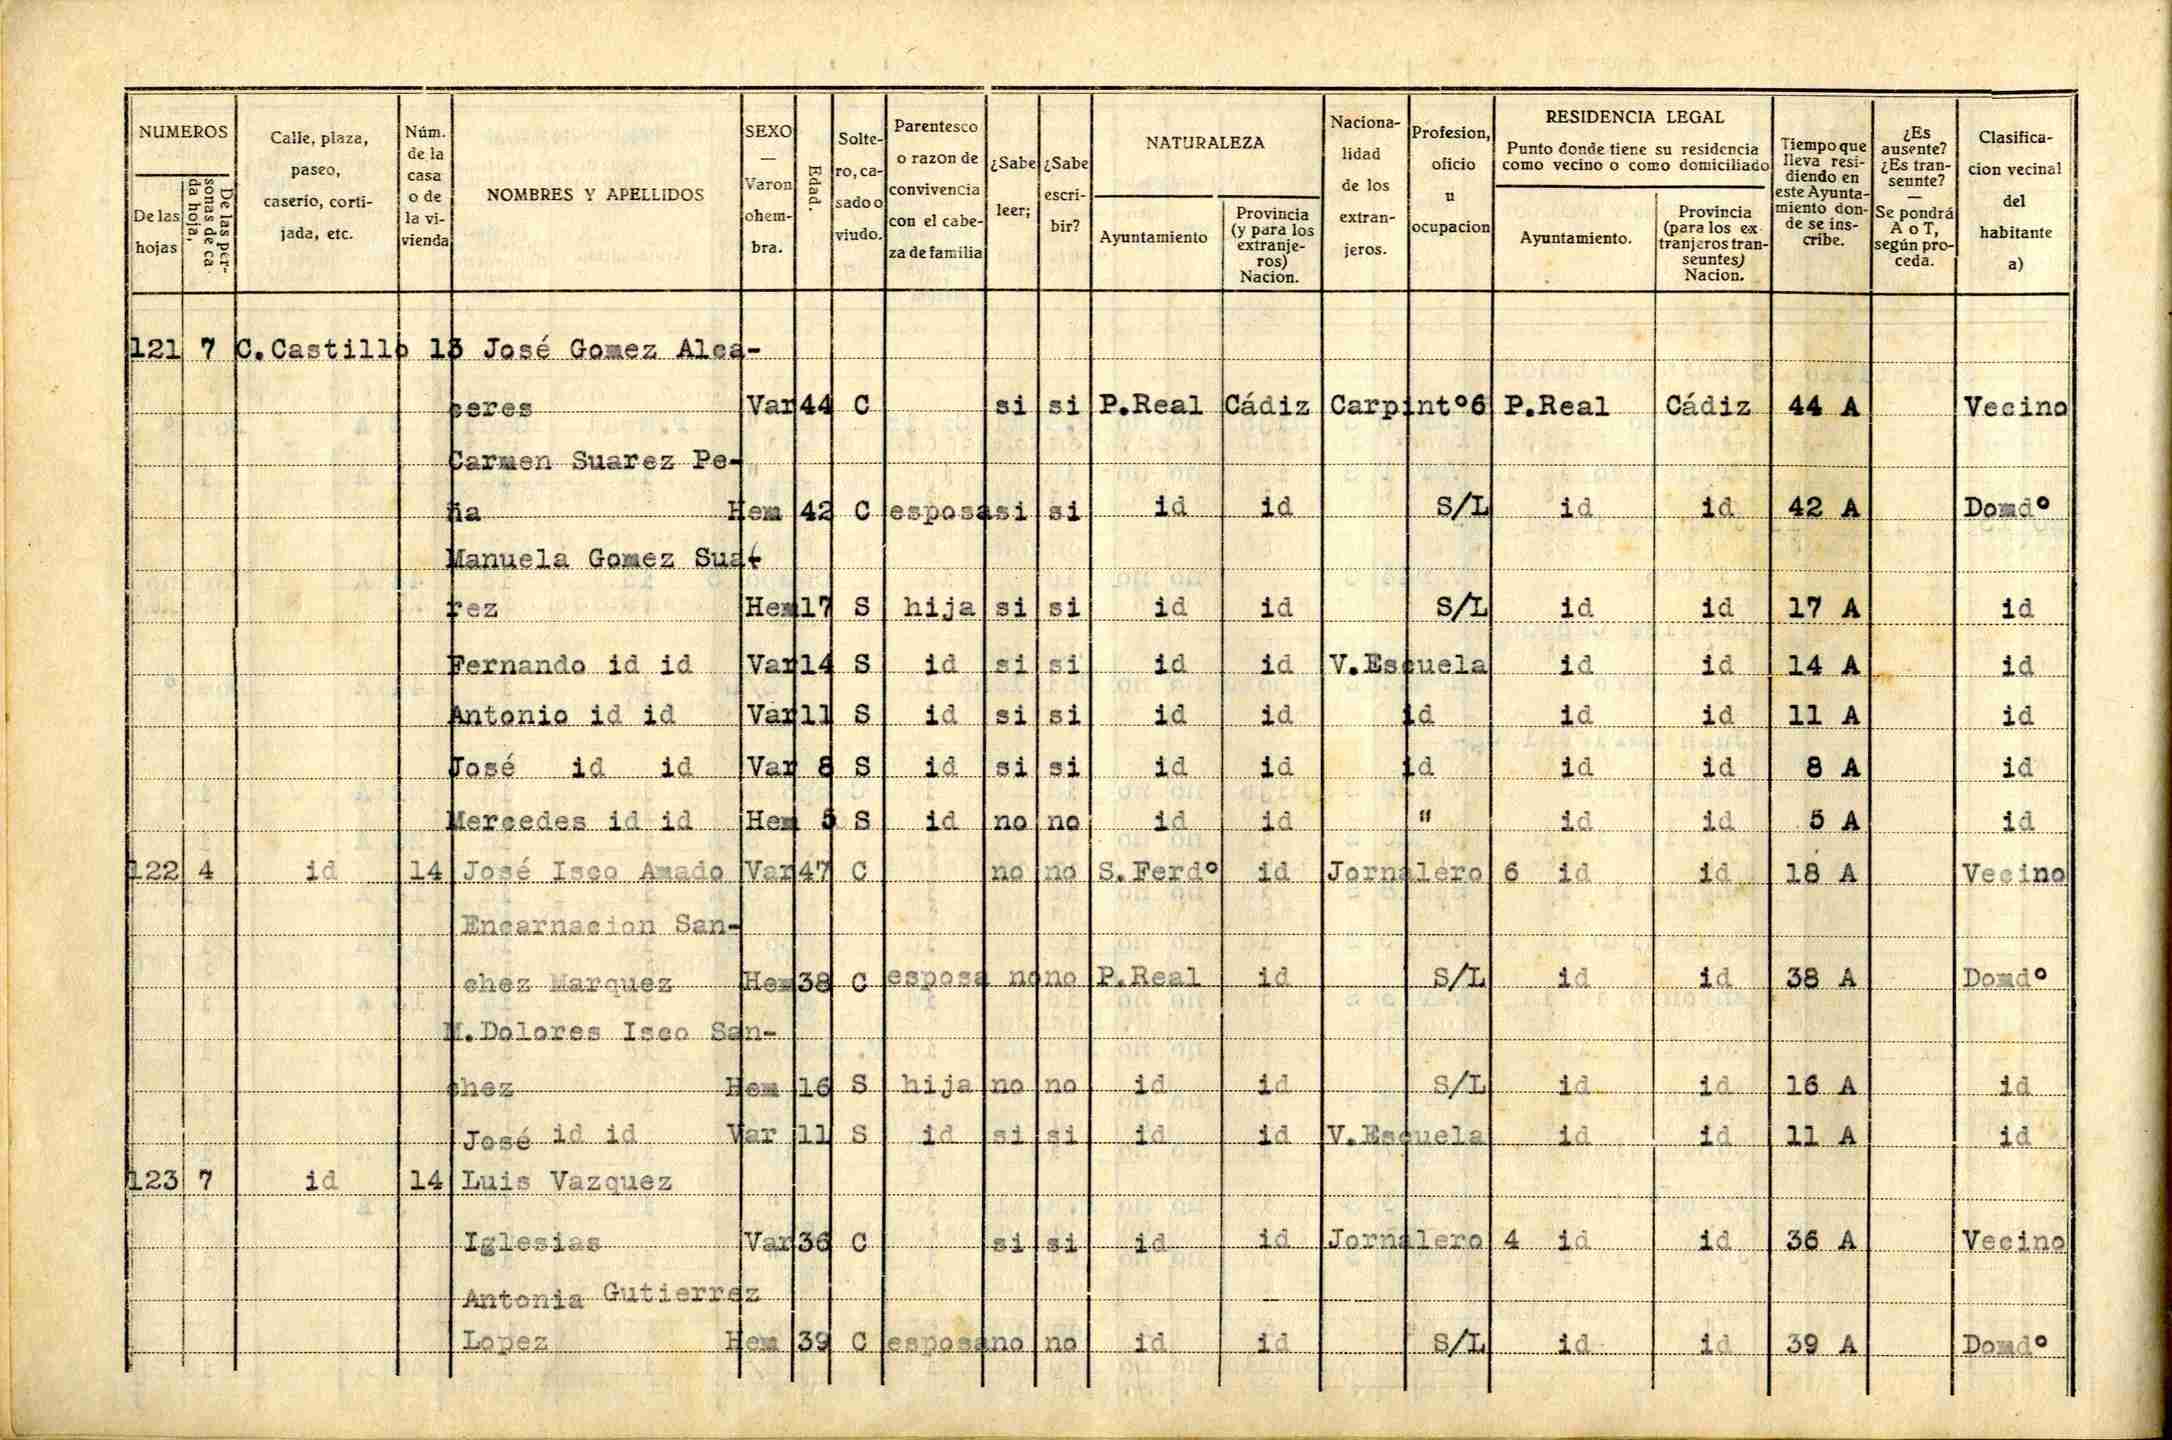 NUMEROS
De las hojas
De las personas de cada hoja,
Calle, plaza, paseo, caserio, cortijada, etc.
Núm. de la casa o de la vivienda
NOMBRES Y APELLIDOS
SEXO — Varon o hembra.
Edad.
Soltero, casado o viudo.
Parentesco o razon de convivencia con el cabeza de familia
¿Sabe leer;
¿Sabe escribir?
NATURALEZA
Ayuntamiento
Provincia (y para los extranjeros) Nacion.
Nacionalidad de los extranjeros.
Profesion, oficio u ocupacion
RESIDENCIA LEGAL
Punto donde tiene su residencia como vecino o como domiciliado
Ayuntamiento.
Provincia (para los extranjeros transeuntes) Nacion.
Tiempo que lleva residiendo en este Ayuntamiento donde se inscribe.
¿Es ausente? ¿Es transeunte? — Se pondrá A o T, según proceda.
Clasificacion vecinal del habitante a)
121 7 C.Castillo 13 José Gomez Alca-
ceres Var 44 C si si P.Real Cádiz Carpintº6 P.Real Cádiz 44 A Vecino
Carmen Suarez Pe-
ña Hem 42 C esposa si si id id S/L id id 42 A Domdº
Manuela Gomez Sua-
rez Hem 17 S hija si si id id S/L id id 17 A id
Fernando id id Var 14 S id si si id id V.Escuela id id 14 A id
Antonio id id Var 11 S id si si id id id id id 11 A id
José id id Var 8 S id si si id id id id id 8 A id
Mercedes id id Hem 5 S id no no id id " id id 5 A id
122 4 id 14 José Isco Amado Var 47 C no no S.Ferdº id Jornalero 6 id id 18 A Vecino
Encarnacion San-
chez Marquez Hem 38 C esposa no no P.Real id S/L id id 38 A Domdº
M.Dolores Isco San-
chez Hem 16 S hija no no id id S/L id id 16 A id
José id id Var 11 S id si si id id V.Escuela id id 11 A id
123 7 id 14 Luis Vazquez
Iglesias Var 36 C si si id id Jornalero 4 id id 36 A Vecino
Antonia Gutierrez
Lopez Hem 39 C esposa no no id id S/L id id 39 A Domdº